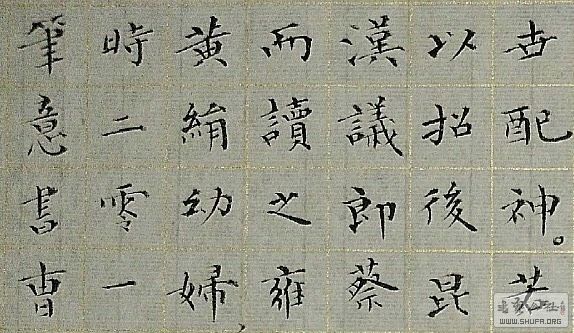 世配神。若
以招後昆
漢議郎蔡
而讀之雍
黄絹幼婦，
時二零一
筆意書曹
WWW.SHUFA.ORG